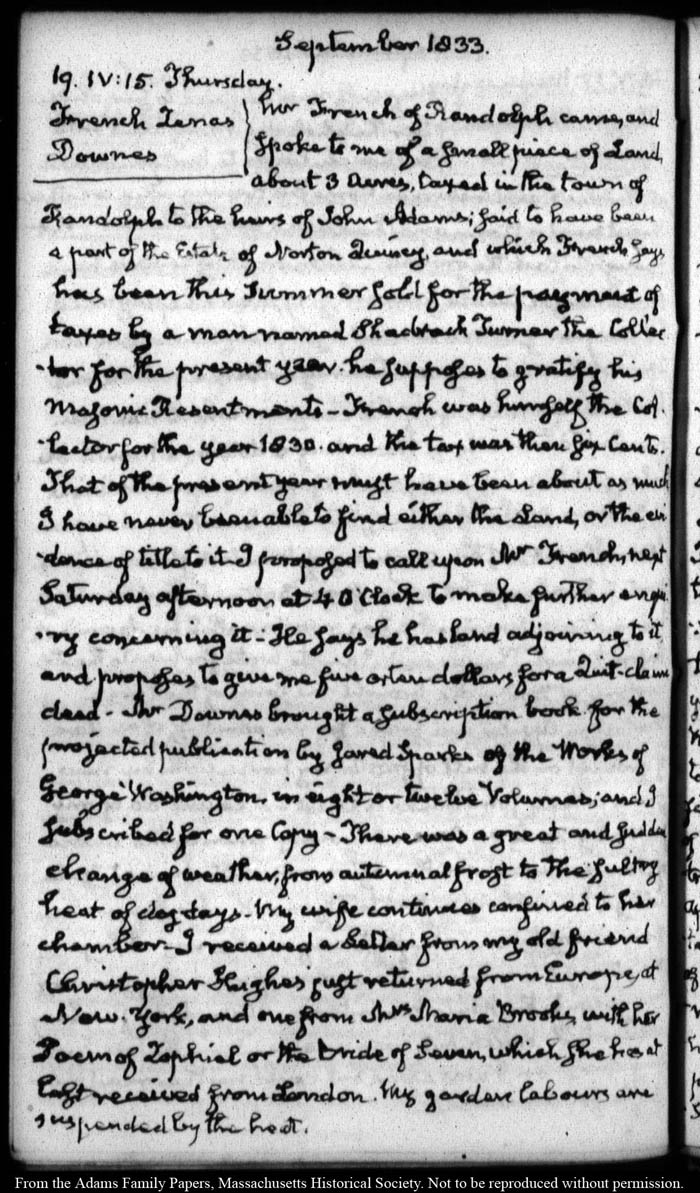 September 1833.
19. IV:15. Thursday.
French Zenas
Downes
Mr French of Randolph came, and
spoke to me of a small piece of Land,
about 3 Acres, taxed in the town of
Randolph to the heirs of John Adams; said to have been
a part of the Estate of Norton Quincy, and which French says
has been this Summer sold for the payment of
taxes by a man named Shadrach Turner the Collec
-tor for the present year. he supposes to gratify his
Masonic Resentments – French was himself the Col-
-lector for the year 1830. and the tax was then six Cents.
That of the present year must have been about as much
I have never been able to find either the Land, or the evi
-dence of title to it. I proposed to call upon Mr French, next
Saturday afternoon at 4 O'Clock to make further enqui
-ry concerning it – He says he has land adjoining to it,
and proposes to give me five or ten dollars for a Quit-claim
deed – Mr Downes brought a subscription book for the
projected publication by Jared Sparks of the Works of
George Washington, in eight or twelve Volumes; and I
subscribed for one Copy – There was a great and sudden
change of weather, from autumnal frost to the sultry
heat of dog days – My wife continues confined to her
chamber – I received a Letter from my old friend
Christopher Hughes just returned from Europe, at
New-York, and one from Mrs Maria Brooks, with her
Poem of Zophiel or the bride of Seven, which she has at
last received from London. My garden labours are
suspended by the heat.
From the Adams Family Papers, Massachusetts Historical Society. Not to be reproduced without permission.